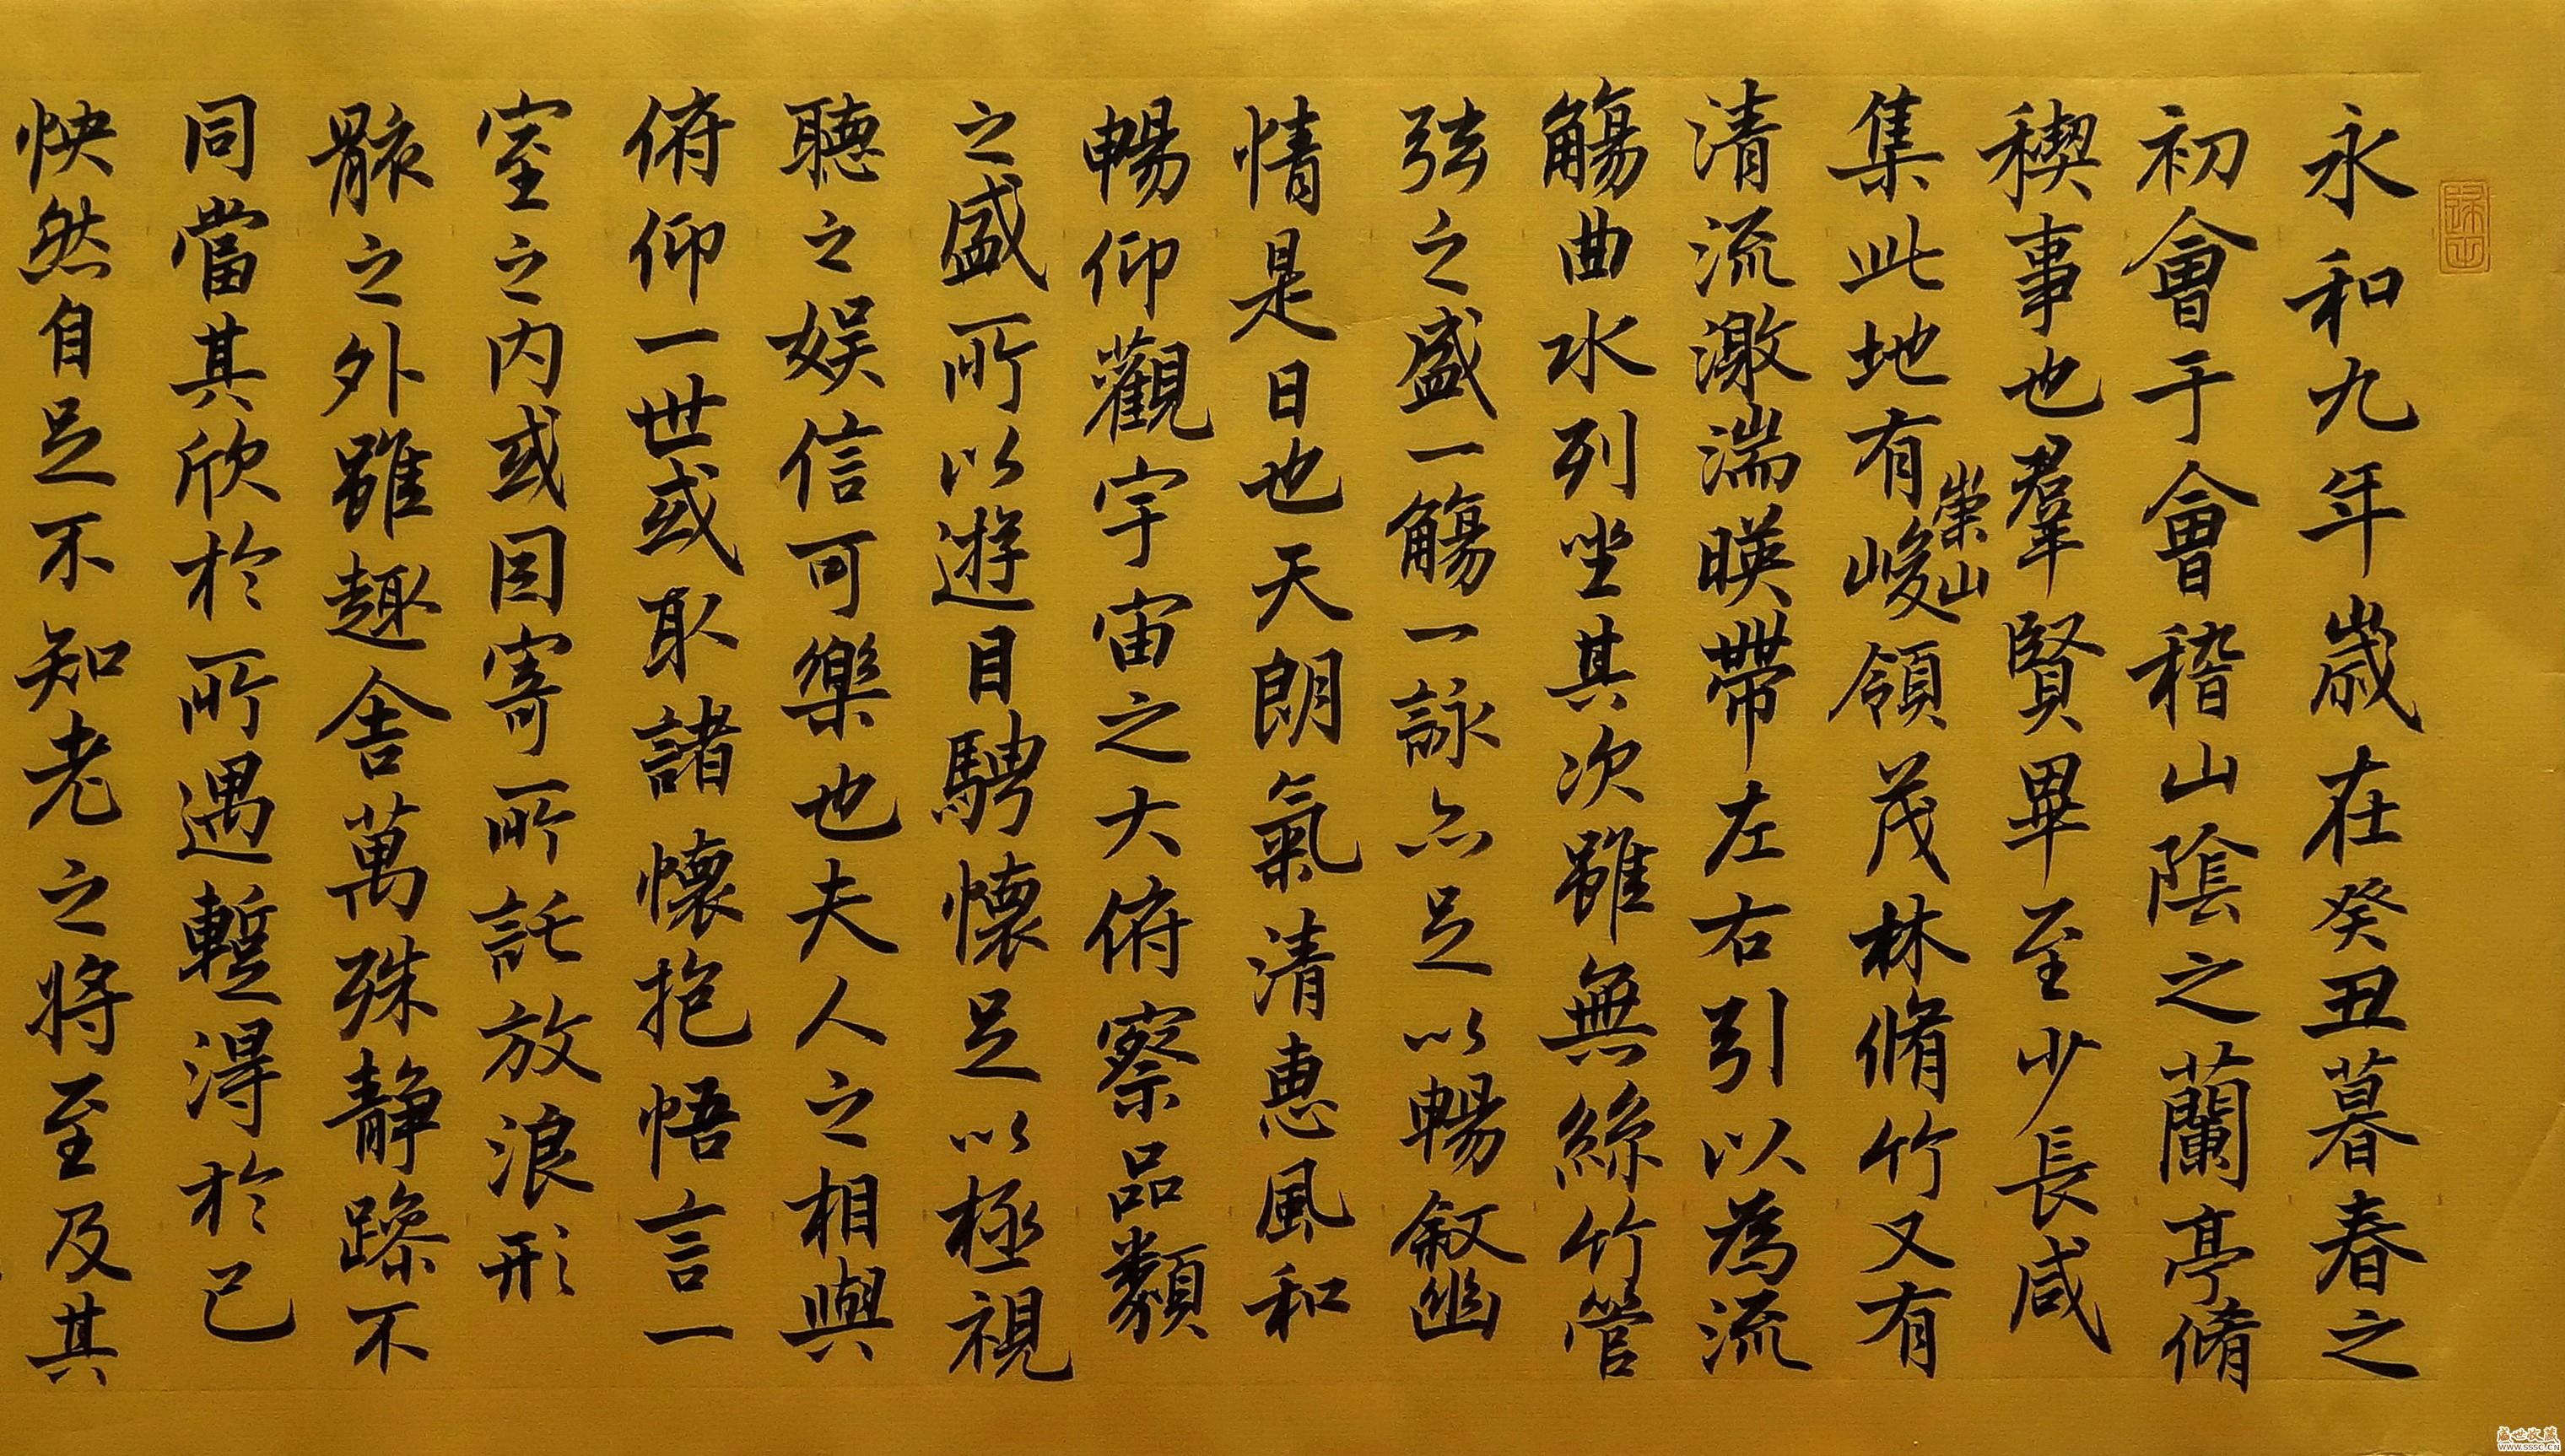 永和九年歲在癸丑暮春之
初會于會稽山陰之蘭亭脩
稧事也羣賢畢至少長咸
集此地有崇山峻領茂林脩竹又有
清流激湍暎帶左右引以為流
觴曲水列坐其次雖無絲竹管
弦之盛一觴一詠亦足以暢敘幽
情是日也天朗氣清惠風和
暢仰觀宇宙之大俯察品類
之盛所以遊目騁懷足以極視
聽之娛信可樂也夫人之相與
俯仰一世或取諸懷抱悟言一
室之內或因寄所託放浪形
骸之外雖趣舍萬殊靜躁不
同當其欣於所遇蹔得於己
怏然自足不知老之將至及其
盛世收藏
www.sssc.cn